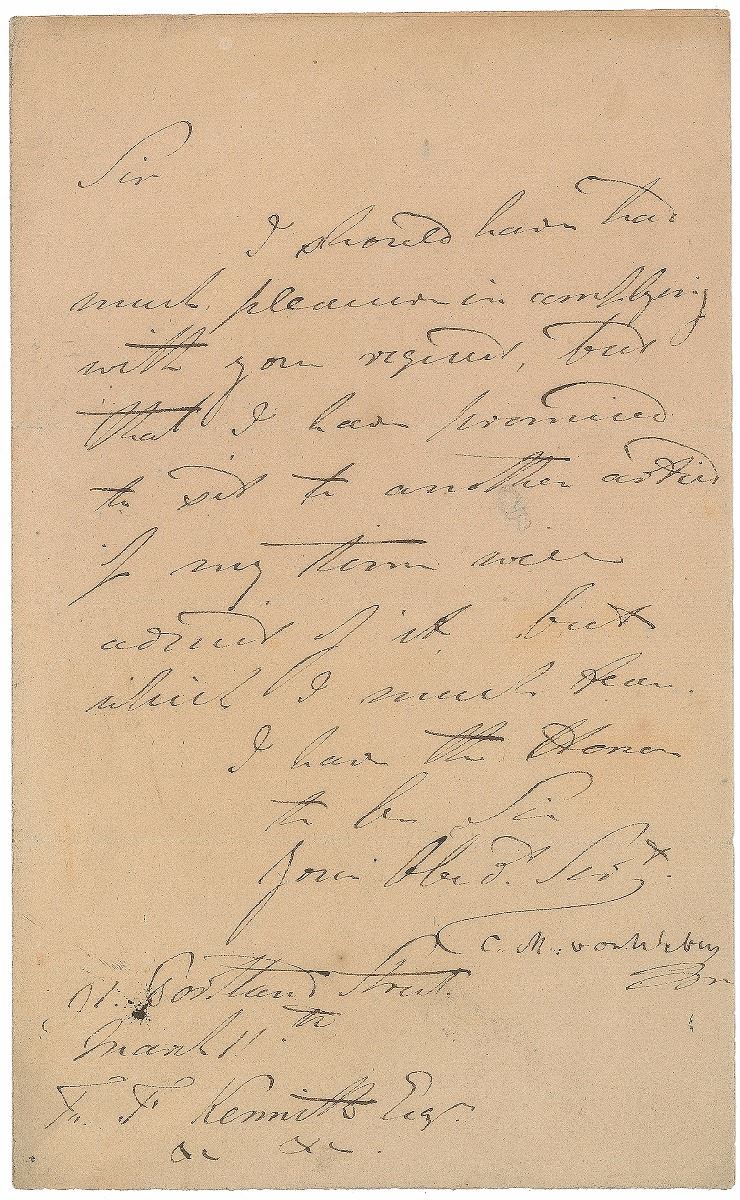 Sir
I should have had
much pleasure in complying
with your request, but
that I have promised
to sit to another artist
if my time will
admit of it but
which I much fear.
I have the Honor
to be Sir
your Obedt. Servt.
C. M. von Weber
91. Portland Street.
March 11.th
F. Kennith Esqr.
&c &c.